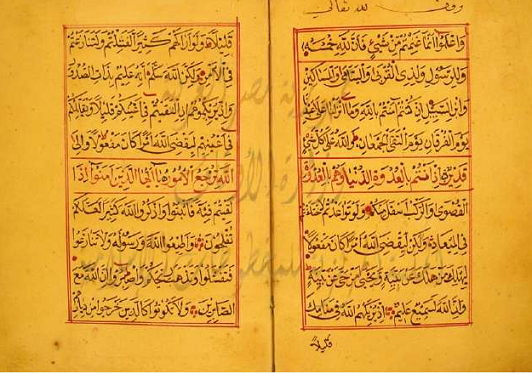 وقف لله تعالى
واعلموا انما غنمتم من شئ فان لله خمسه
وللرسول ولذى القربى واليتامى والمساكين
وابن السبيل ان كنتم امنتم بالله وما انزلنا على عبدنا
يوم الفرقان يوم التقى الجمعان والله على كل شئ
قدير اذ انتم بالعدوة الدنيا وهم بالعدوة
القصوى والركب اسفل منكم ولو تواعدتم لاختلفتم
فى الميعاد ولكن ليقضى الله امرا كان مفعولا
ليهلك من هلك عن بينة ويحيى من حى عن بينة
وان الله لسميع عليم اذ يريكهم الله فى منامك
قليلا
قليلا ولو اراكهم كثيرا لفشلتم ولتنازعتم
فى الامر ولكن الله سلم انه عليم بذات الصدور
واذ يريكموهم اذ التقيتم فى اعينكم قليلا ويقللكم
فى اعينهم ليقضى الله امرا كان مفعولا والى
الله ترجع الامور يا ايها الذين امنوا اذا
لقيتم فئة فاثبتوا واذكروا الله كثيرا لعلكم
تفلحون واطيعوا الله ورسوله ولا تنازعوا
فتفشلوا وتذهب ريحكم واصبروا ان الله مع
الصابرين ولا تكونوا كالذين خرجوا من ديار